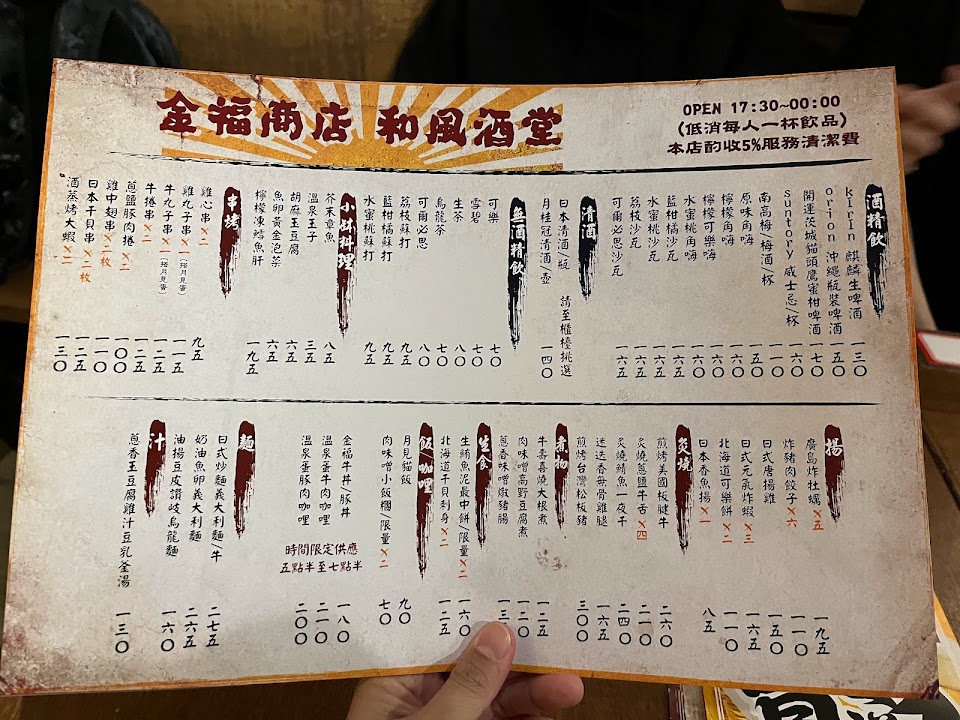 金福商店 和風酒堂
OPEN 17:30~00:00
(低消每人一杯飲品)
本店酌收5%服務清潔費
酒精飲
kirin 麒麟生啤酒 一三〇
orion 沖繩瓶裝啤酒 一五〇
開運茨城貓頭鷹蜜柑啤酒 一七〇
suntory 威士忌/杯 一六〇
南高梅/梅酒/杯 一〇〇
原味角嗨 一五〇
檸檬角嗨 一六〇
檸檬可樂角嗨 一六〇
水蜜桃角嗨 一六五
藍柑橘沙瓦 一六五
水蜜桃沙瓦 一六五
荔枝沙瓦 一六五
可爾必思沙瓦 一六五
清酒
日本清酒/瓶 請至櫃檯挑選
月桂冠清酒/壺 一四〇
無酒精飲
可樂 七〇
雪碧 七〇
生茶 八〇
烏龍茶 七〇
可爾必思 八〇
荔枝蘇打 九五
藍柑橘蘇打 九五
水蜜桃蘇打 九五
小缽料理
芥末章魚 八五
溫泉玉子 三五
胡麻玉豆腐 六五
魚卵黃金泡菜 六五
檸檬凍鱈魚肝 一九五
串烤
雞心串×二 九五
雞丸子串×一(搭月見醬) 一一五
牛丸子串×一(搭月見醬) 一二五
牛捲串×二 一二五
蔥鹽豚肉捲×二 一〇〇
雞中翅串×二 一一〇
日本干貝串×二枚 一二五
酒蒸烤大蝦×二 一三〇
揚
廣島炸牡蠣×五 一九五
炸豬肉餃子×六 一一〇
日式唐揚雞 一五〇
日式元氣炸蝦×三 一七〇
北海道可樂餅×二 一一〇
日本香魚揚×一 八五
炙燒
煎烤美國板腱牛 二六〇
炙燒蔥鹽牛舌×四 二一〇
炙燒鯖魚一夜干 二四〇
迷迭香無骨雞腿 一六五
煎烤台灣松板豬 三〇〇
煮物
牛壽喜燒大根煮 一二五
肉味噌高野豆腐煮 一二〇
蔥香味噌燉豬腸
生食
生鮪魚泥最中餅/限量×二 一六〇
北海道干貝刺身×二 一二五
飯/咖哩
月見貓飯 九〇
肉味噌小飯糰/限量×二 七〇
金福牛丼/豚丼 一八〇
溫泉蛋牛肉咖哩 二一〇
溫泉蛋豚肉咖哩 二〇〇
時間限定供應
五點半至七點半
麵
日式炒麵義大利麵/牛 二七五
奶油魚卵義大利麵 二六五
油揚豆皮讚岐烏龍麵 一六〇
汁
蔥香玉豆腐雞汁豆乳釜湯 一三〇